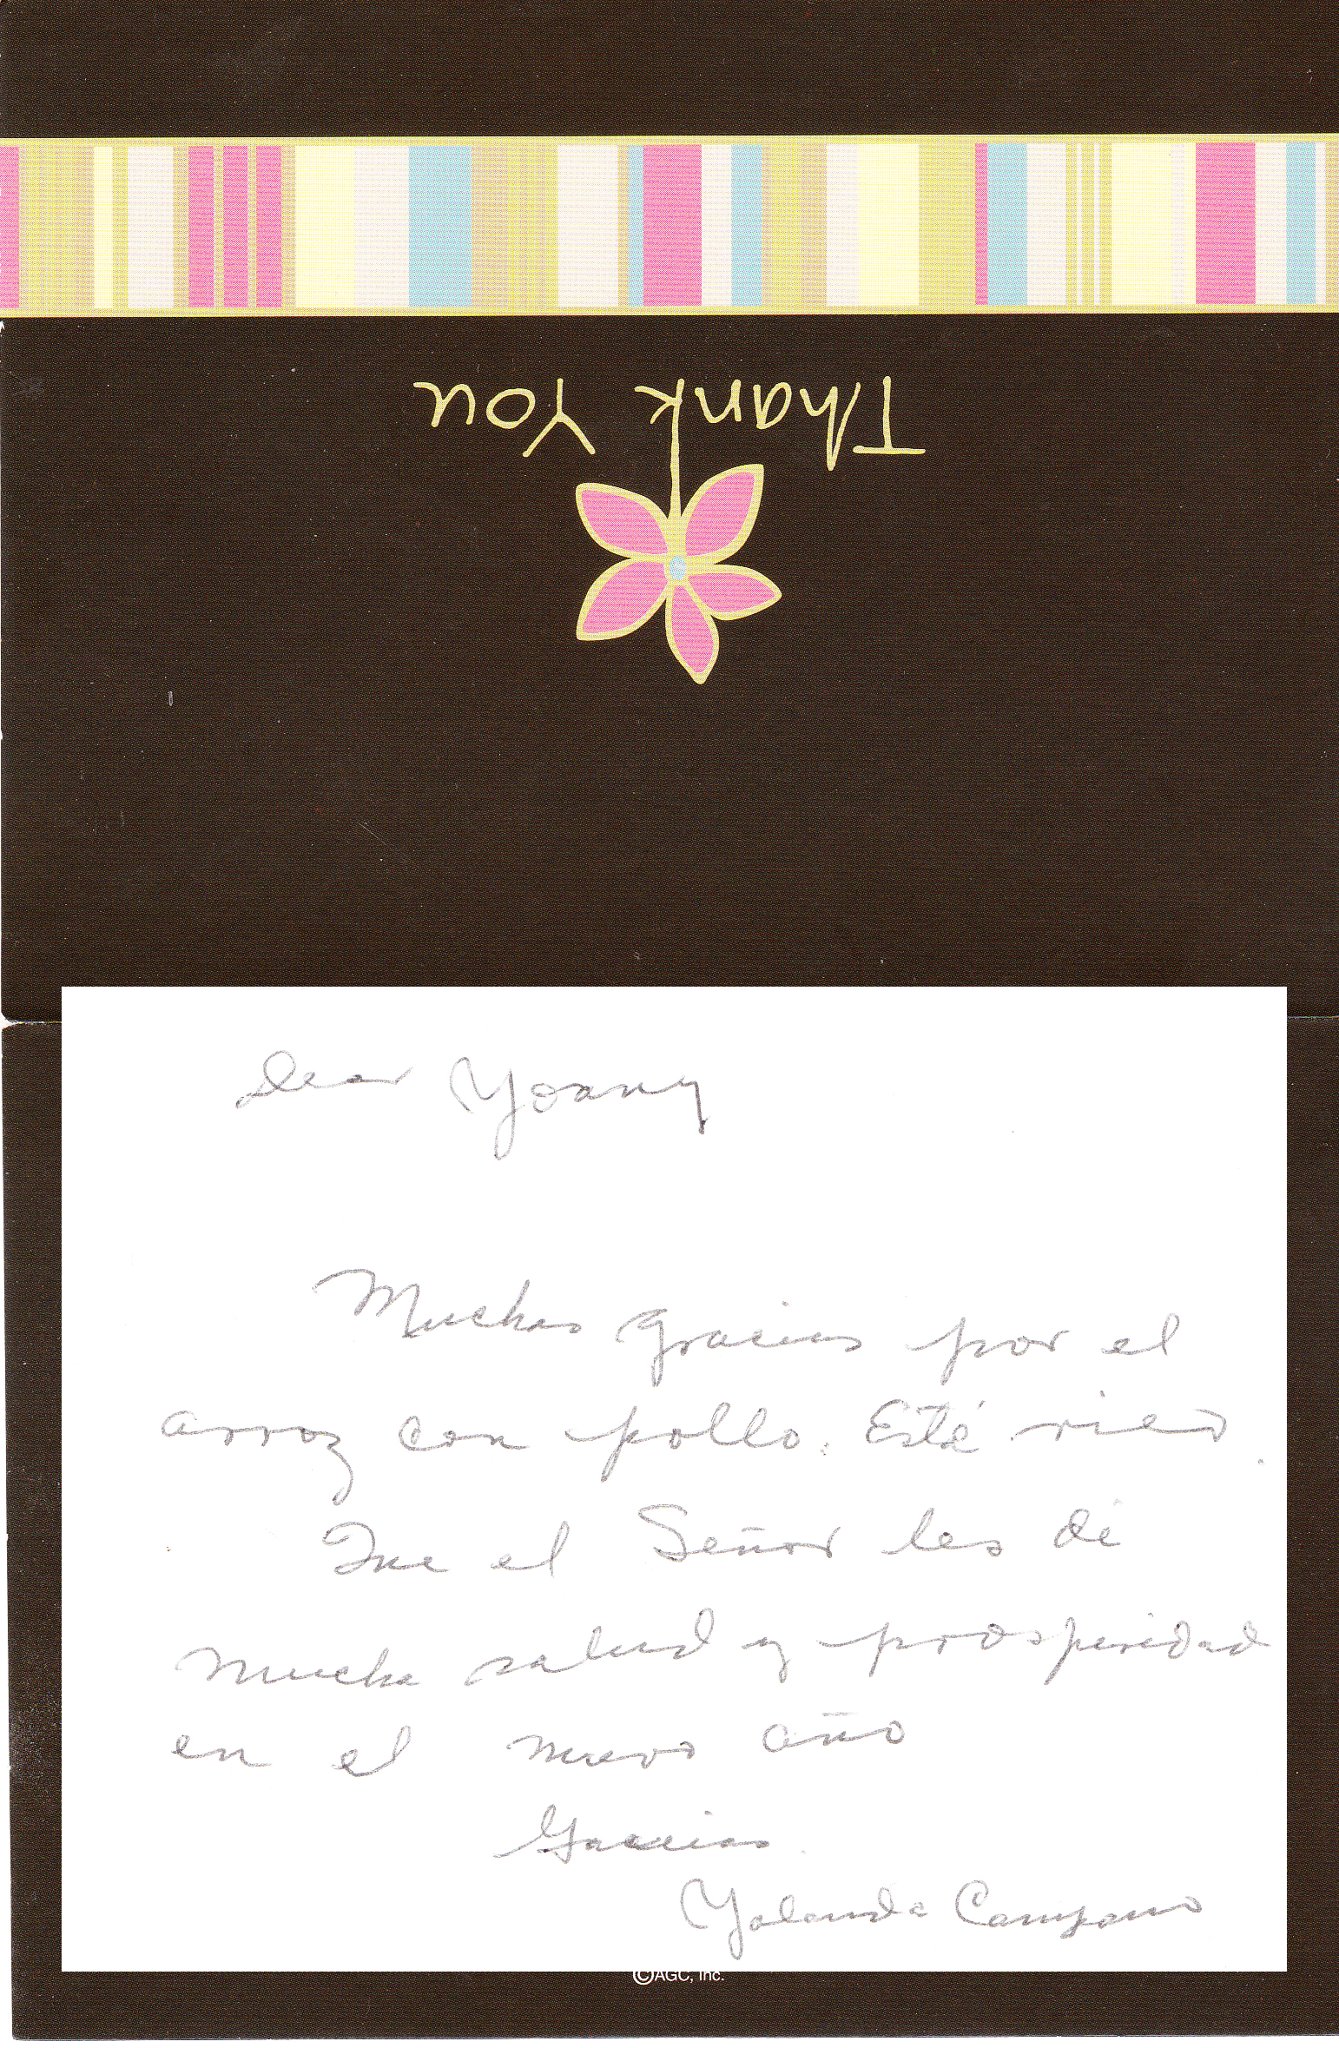 Thank You
Dear Yoany
Muchas gracias por el
arroz con pollo. Está rico.
Que el Señor les dé
mucha salud y prosperidad
en el nuevo año
Gracias
Yolanda Campano
©AGC, Inc.